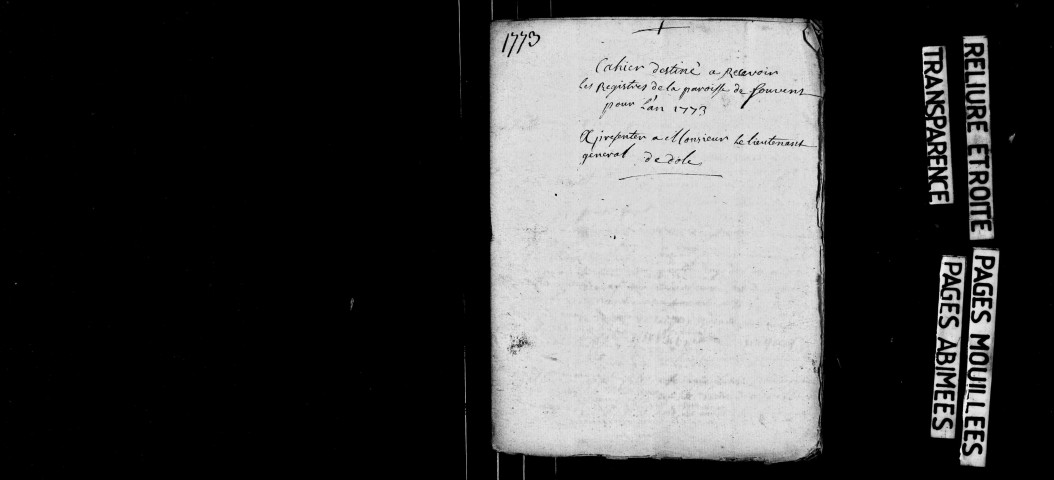 1773
Cahier destiné a Recevoir
les Registres de la paroisse de Souvans
pour l'an 1773
A presenter a Monsieur le lieutenant
general de dole
RELIURE ETROITE
TRANSPARENCE
PAGES MOUILLEES
PAGES ABIMEES